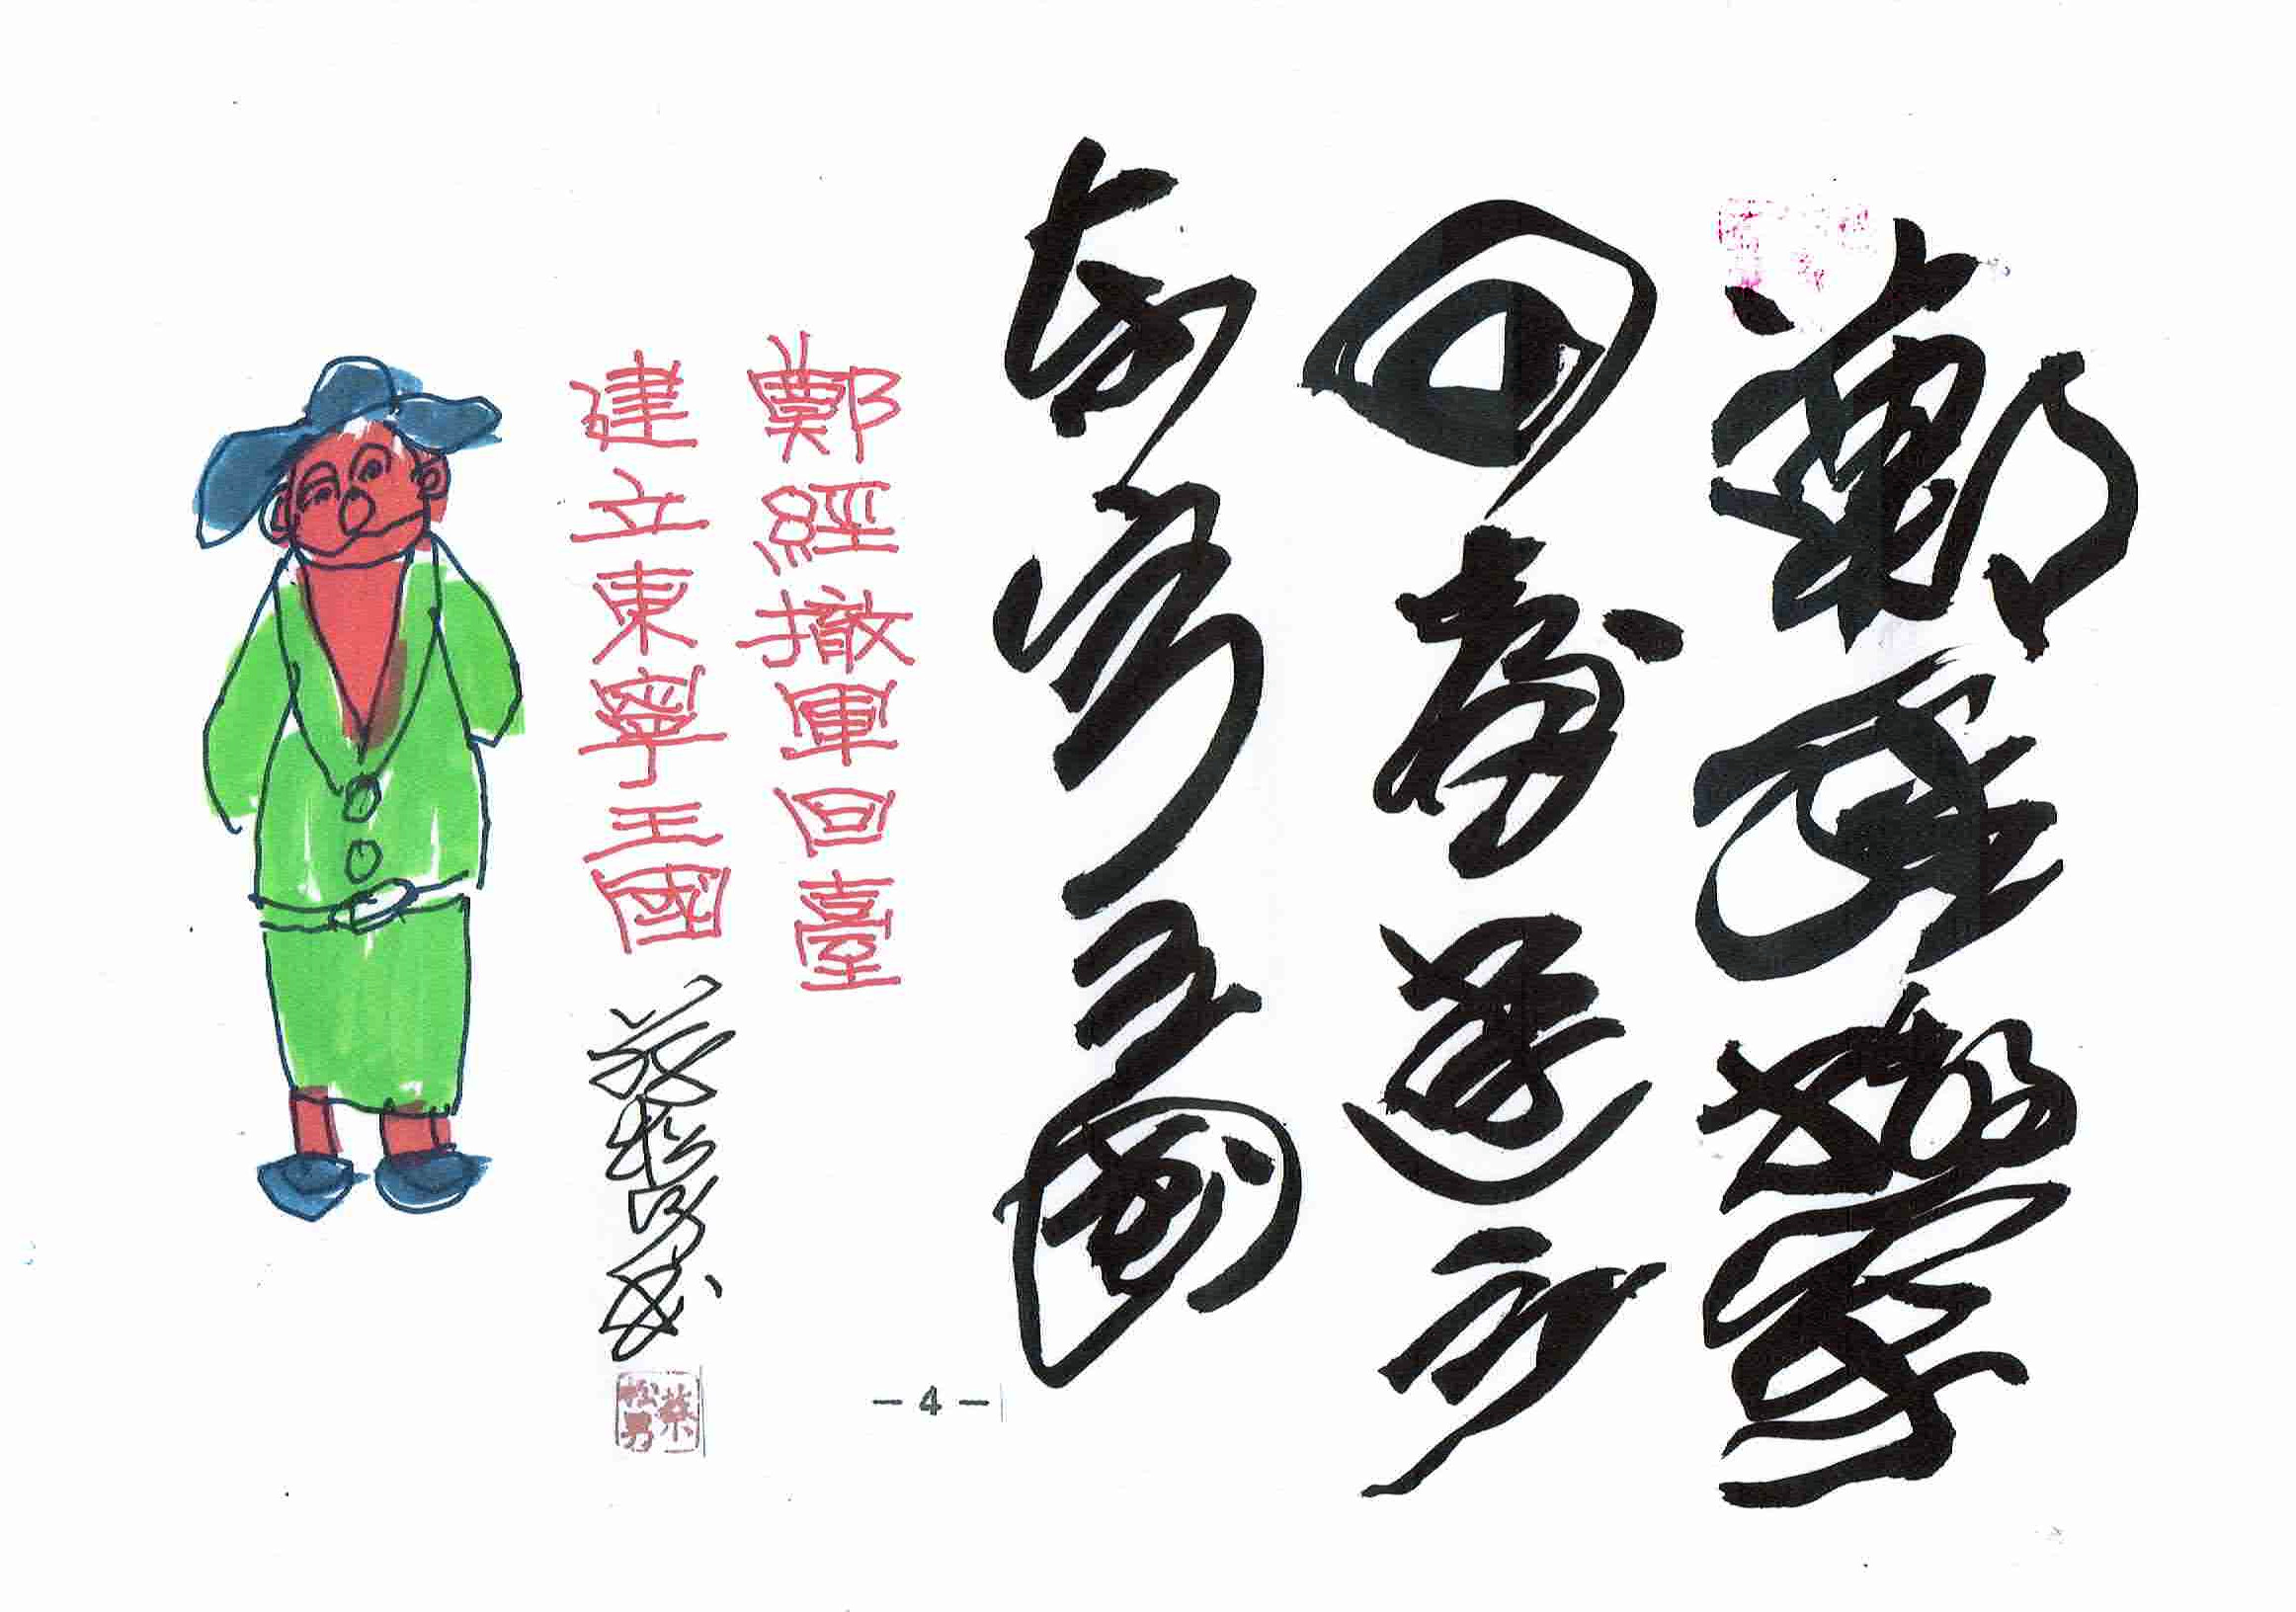 鄭經撤軍
回臺建立
東寧王國
鄭經撤軍回臺
建立東寧王國
蔡松男書
蔡松男
- 4 -